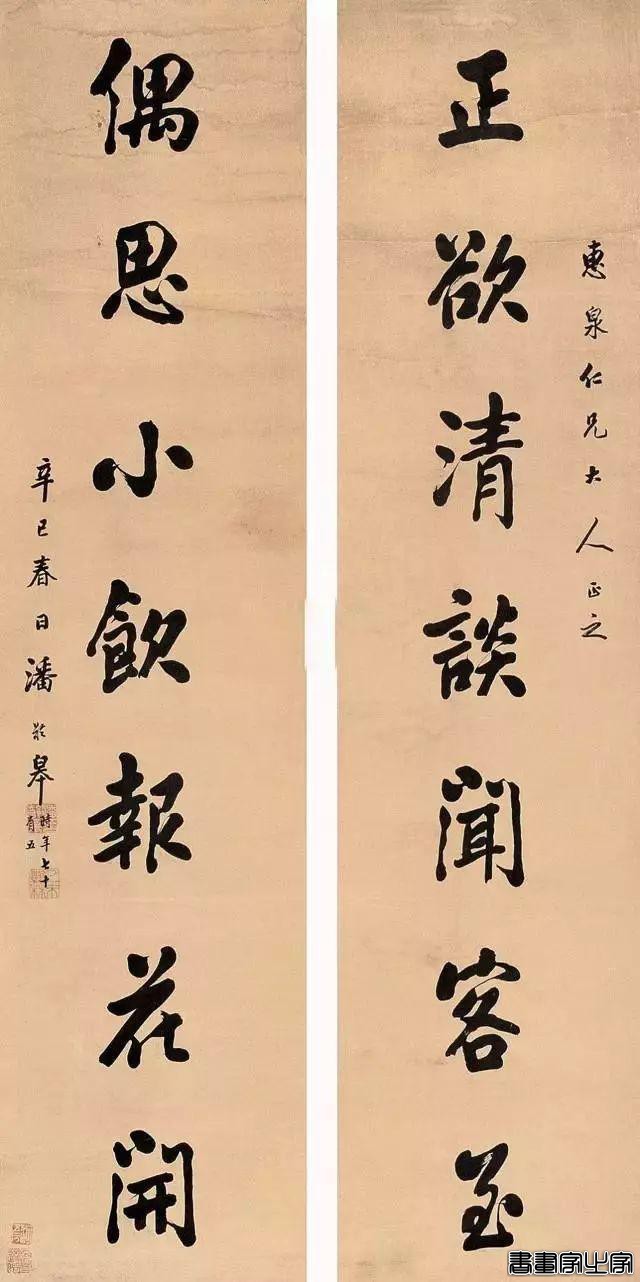 惠泉仁兄大人正之
正欲清談聞客至
偶思小飲報花開
辛巳春日潘齡皋
時年七十
有五
書畫家之家